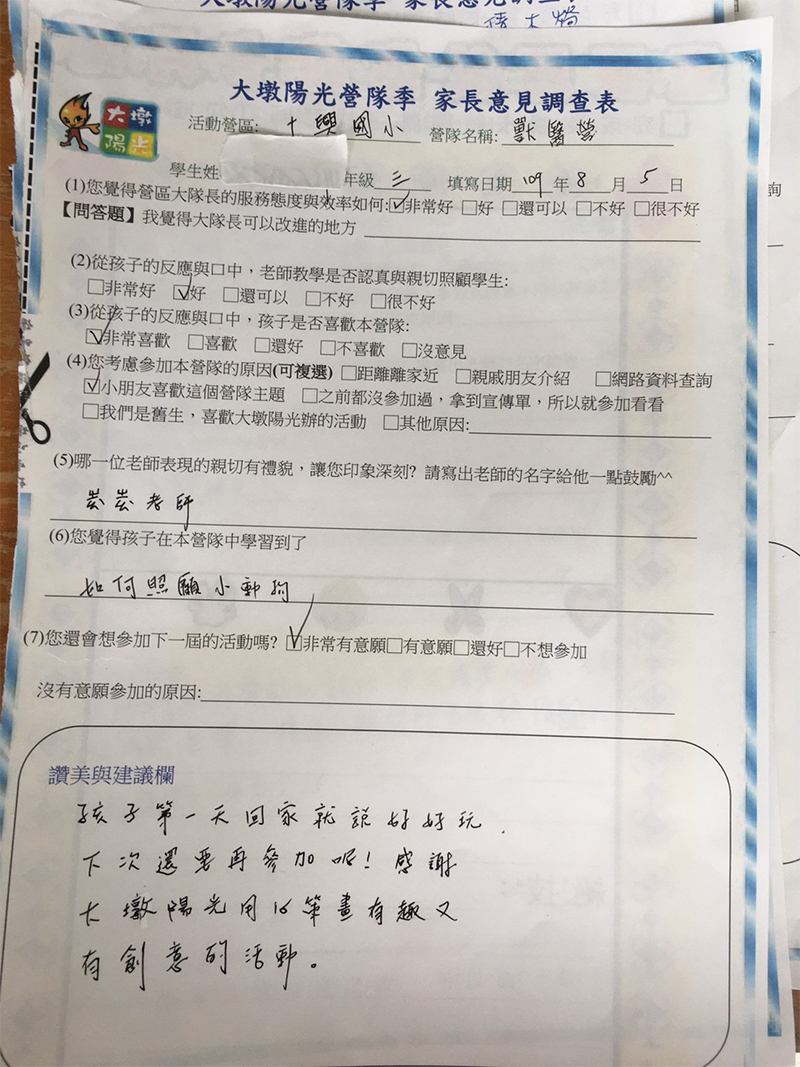 大墩陽光營隊季 家長意見調查表
大墩
陽光
活動營區: 十興國小 營隊名稱: 獸醫營
學生姓 年級 三 填寫日期 109 年 8 月 5 日
(1)您覺得營區大隊長的服務態度與效率如何:☑非常好 □好 □還可以 □不好 □很不好
【問答題】我覺得大隊長可以改進的地方
(2)從孩子的反應與口中，老師教學是否認真與親切照顧學生:
□非常好 ☑好 □還可以 □不好 □很不好
(3)從孩子的反應與口中，孩子是否喜歡本營隊:
☑非常喜歡 □喜歡 □還好 □不喜歡 □沒意見
(4)您考慮參加本營隊的原因(可複選) □距離離家近 □親戚朋友介紹 □網路資料查詢
☑小朋友喜歡這個營隊主題 □之前都沒參加過，拿到宣傳單，所以就參加看看
□我們是舊生，喜歡大墩陽光辦的活動 □其他原因:
(5)哪一位老師表現的親切有禮貌，讓您印象深刻? 請寫出老師的名字給他一點鼓勵^^
老師
(6)您覺得孩子在本營隊中學習到了
如何照顧小動物
(7)您還會想參加下一屆的活動嗎? ☑非常有意願□有意願□還好□不想參加
沒有意願參加的原因:
讚美與建議欄
孩子第一天回家就說好好玩，
下次還要再參加呢！感謝
大墩陽光用心策畫有趣又
有創意的活動。
詢